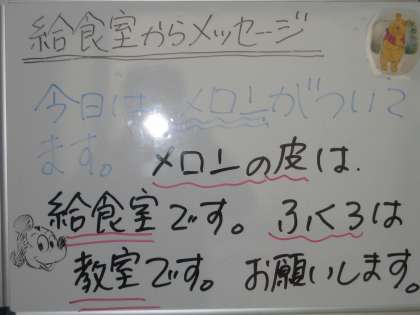 給食室からメッセージ
今日は、メロンがついて
ます。メロンの皮は、
給食室です。ふくろは
教室です。お願いします。